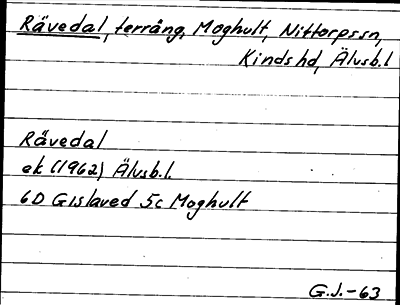 Rävedal, terräng, Moghult, Nittorps sn,
Kinds hd, Älvsb. l
Rävedal
ek (1962) Älvsb. l.
6D Gislaved 5c Moghult
G.J.-63